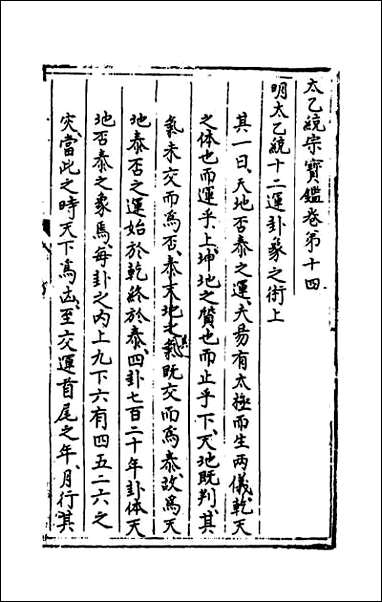 太乙統宗寶鑑卷第十四
明太乙統十二運卦象之術上
其一曰天地否泰之運夫易有太極而生两儀乾天
之体也而運乎上坤地之質也而止乎下天地既判其
氣未交而爲否泰天地之氣既交而爲泰故爲天
地泰否之運始於乾終於泰四卦七百二十年卦体天
地否泰之象焉每卦之内上九下六有四五二六之
灾當此之時天下爲
至交運首尾之年月行其